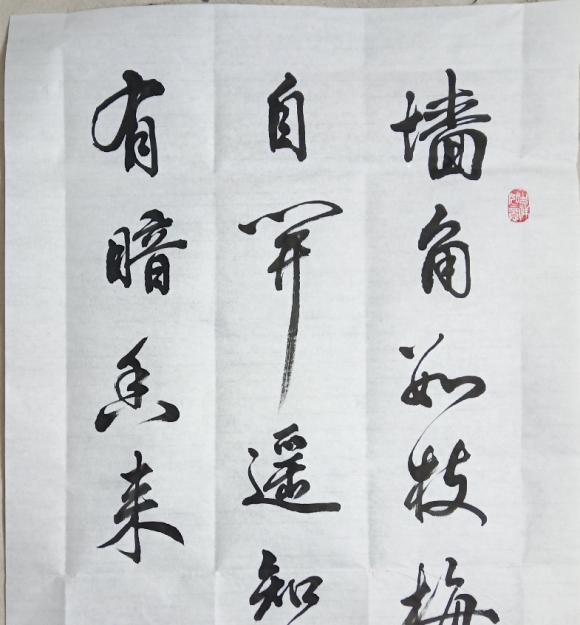 墙角数枝梅
自开遥知
有暗香来